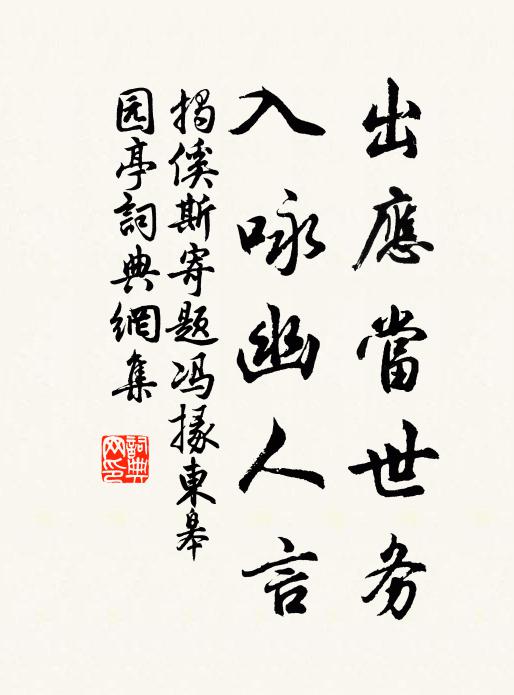 出應當世務
入咏幽人言
揭傒斯寄題冯掾東皋
园亭詞典網集
詞典
网印